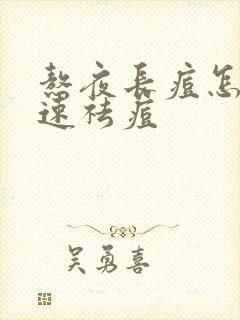 熬夜长痘怎
速祛痘
吴勇喜